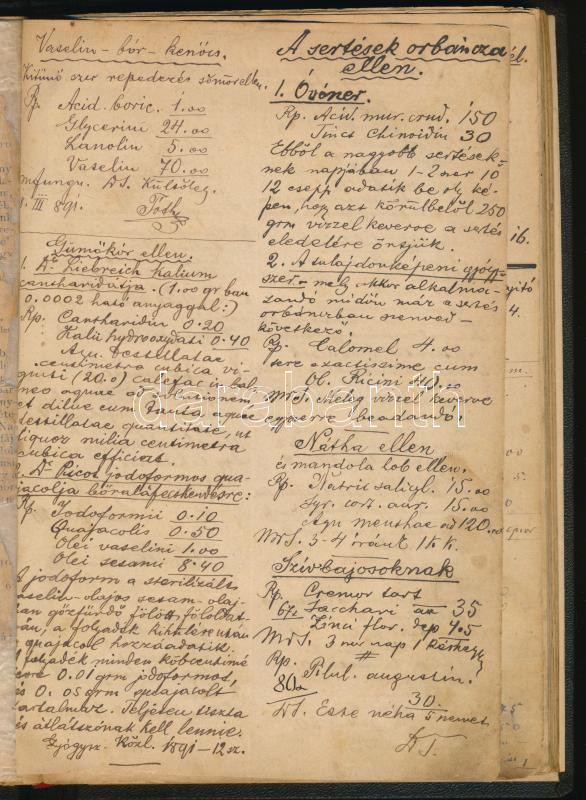 Vaselin-bór-kenőcs.
Kitünő szer repedezés sömör ellen.
Rp. Acid. boric. 1.00
Glycerini 24.00
Lanolin 5.00
Vaselin 70.00
m f ungu. DS. Külsőleg.
1. III 891. Tóth
Gümőkór ellen.
1. Dr Liebreich Kalium
cantharidátja. (1.00 gr ban
0.0002 ható anyaggal:)
Rp. Cantharidin 0.20
Kalii hydrooxydati 0.40
Aqu. Destillatae
centimetra cubica vi-
ginti (20.0) calefac in bal
neo aquae ad solutionem
et dilue cum tanta aquae
destillatae quantitate, ut
liquor milia centimetra
cubica efficiat.
2. Dr Picot jodoformos gua-
jacolja bőraláfecskendésre:
Rp. Jodoformii 0.10
Guajacolis 0.50
Olei vaselini 1.00
Olei sesami 8.40
A jodoform a sterilizált
vaselin-olajos sesam-olaj-
ban gőzfürdő fölött föloldat-
ván, a folyadék kihülése után
guajacol hozzáadatik.
A folyadék minden köbcentimé
tere 0.01 grm jodoformot,
és 0.05 grm guajacolt
tartalmaz. Teljesen tiszta
és átlátszónak kell lennie.
Gyógysz. Közl. 1891-12 sz.
A sertések orbáncza
ellen.
1. Óvószer.
Rp. Acid. mur. crud. 150
Tinct Chinoidin 30
Ebből a nagyobb sertések-
nek napjában 1-2 szer 10
12 csepp adatik be oly ké-
pen, hogy azt körülbelől 250
grm vizzel keverve a sertés
eledelére öntjük.
2. A tulajdonképeni gyógy-
szer - mely akkor alkalma-
zandó midőn már a sertés
orbánczban szenved -
következő.
Rp. Calomel 4.00
tere exactissime cum
Ol. Ricini 40.00
MDS. Meleg vizzel keverve
egyszerre beadandó!
Nátha ellen
és mandola lob ellen.
Rp. Natrii salicyl. 15.00
Syr. cort. aur. 15.00
Aqu menthae ad 120.00
MDS. 3-4 óránt 1 k k.
Szívbajosoknak
Rp. Cremor tart
Sacchari aa 35
Zinci flor. dep 4.5
MDS. 3 szor nap 1 késhegy
Rp. #
Pilul. augustin.
80a
30.
DS. Este néha 5 szemet.
DT.
darabanth
él.
ib.
4.
m.
00
5.